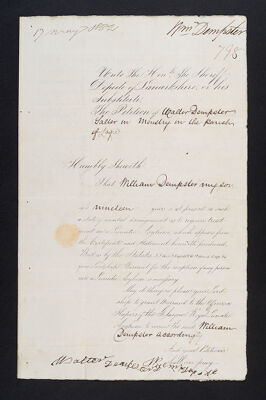 17 May 1852
Wm Dempster
798
Unto The Honble The Sheriff
Depute of Lanarkshire or his
Substitute
The Petition of Walter Dempster
in the Parish
of
Humbly Sheweth
That William Dempster my son
is nineteen years is at present in such
a state of mental derangement as to require treat-
ment in a Lunatic Asylum, which appears from
the Certificate and Statement herewith produced.
That by the Statutes
your Lordships Warrant for the reception of any person
into a Lunatic Asylum is necessary
May it therefore please your Lord-
ship to grant Warrant to the
Keepers of the Glasgow Royal Lunatic
Asylum to the said William
Dempster accordingly
Walter